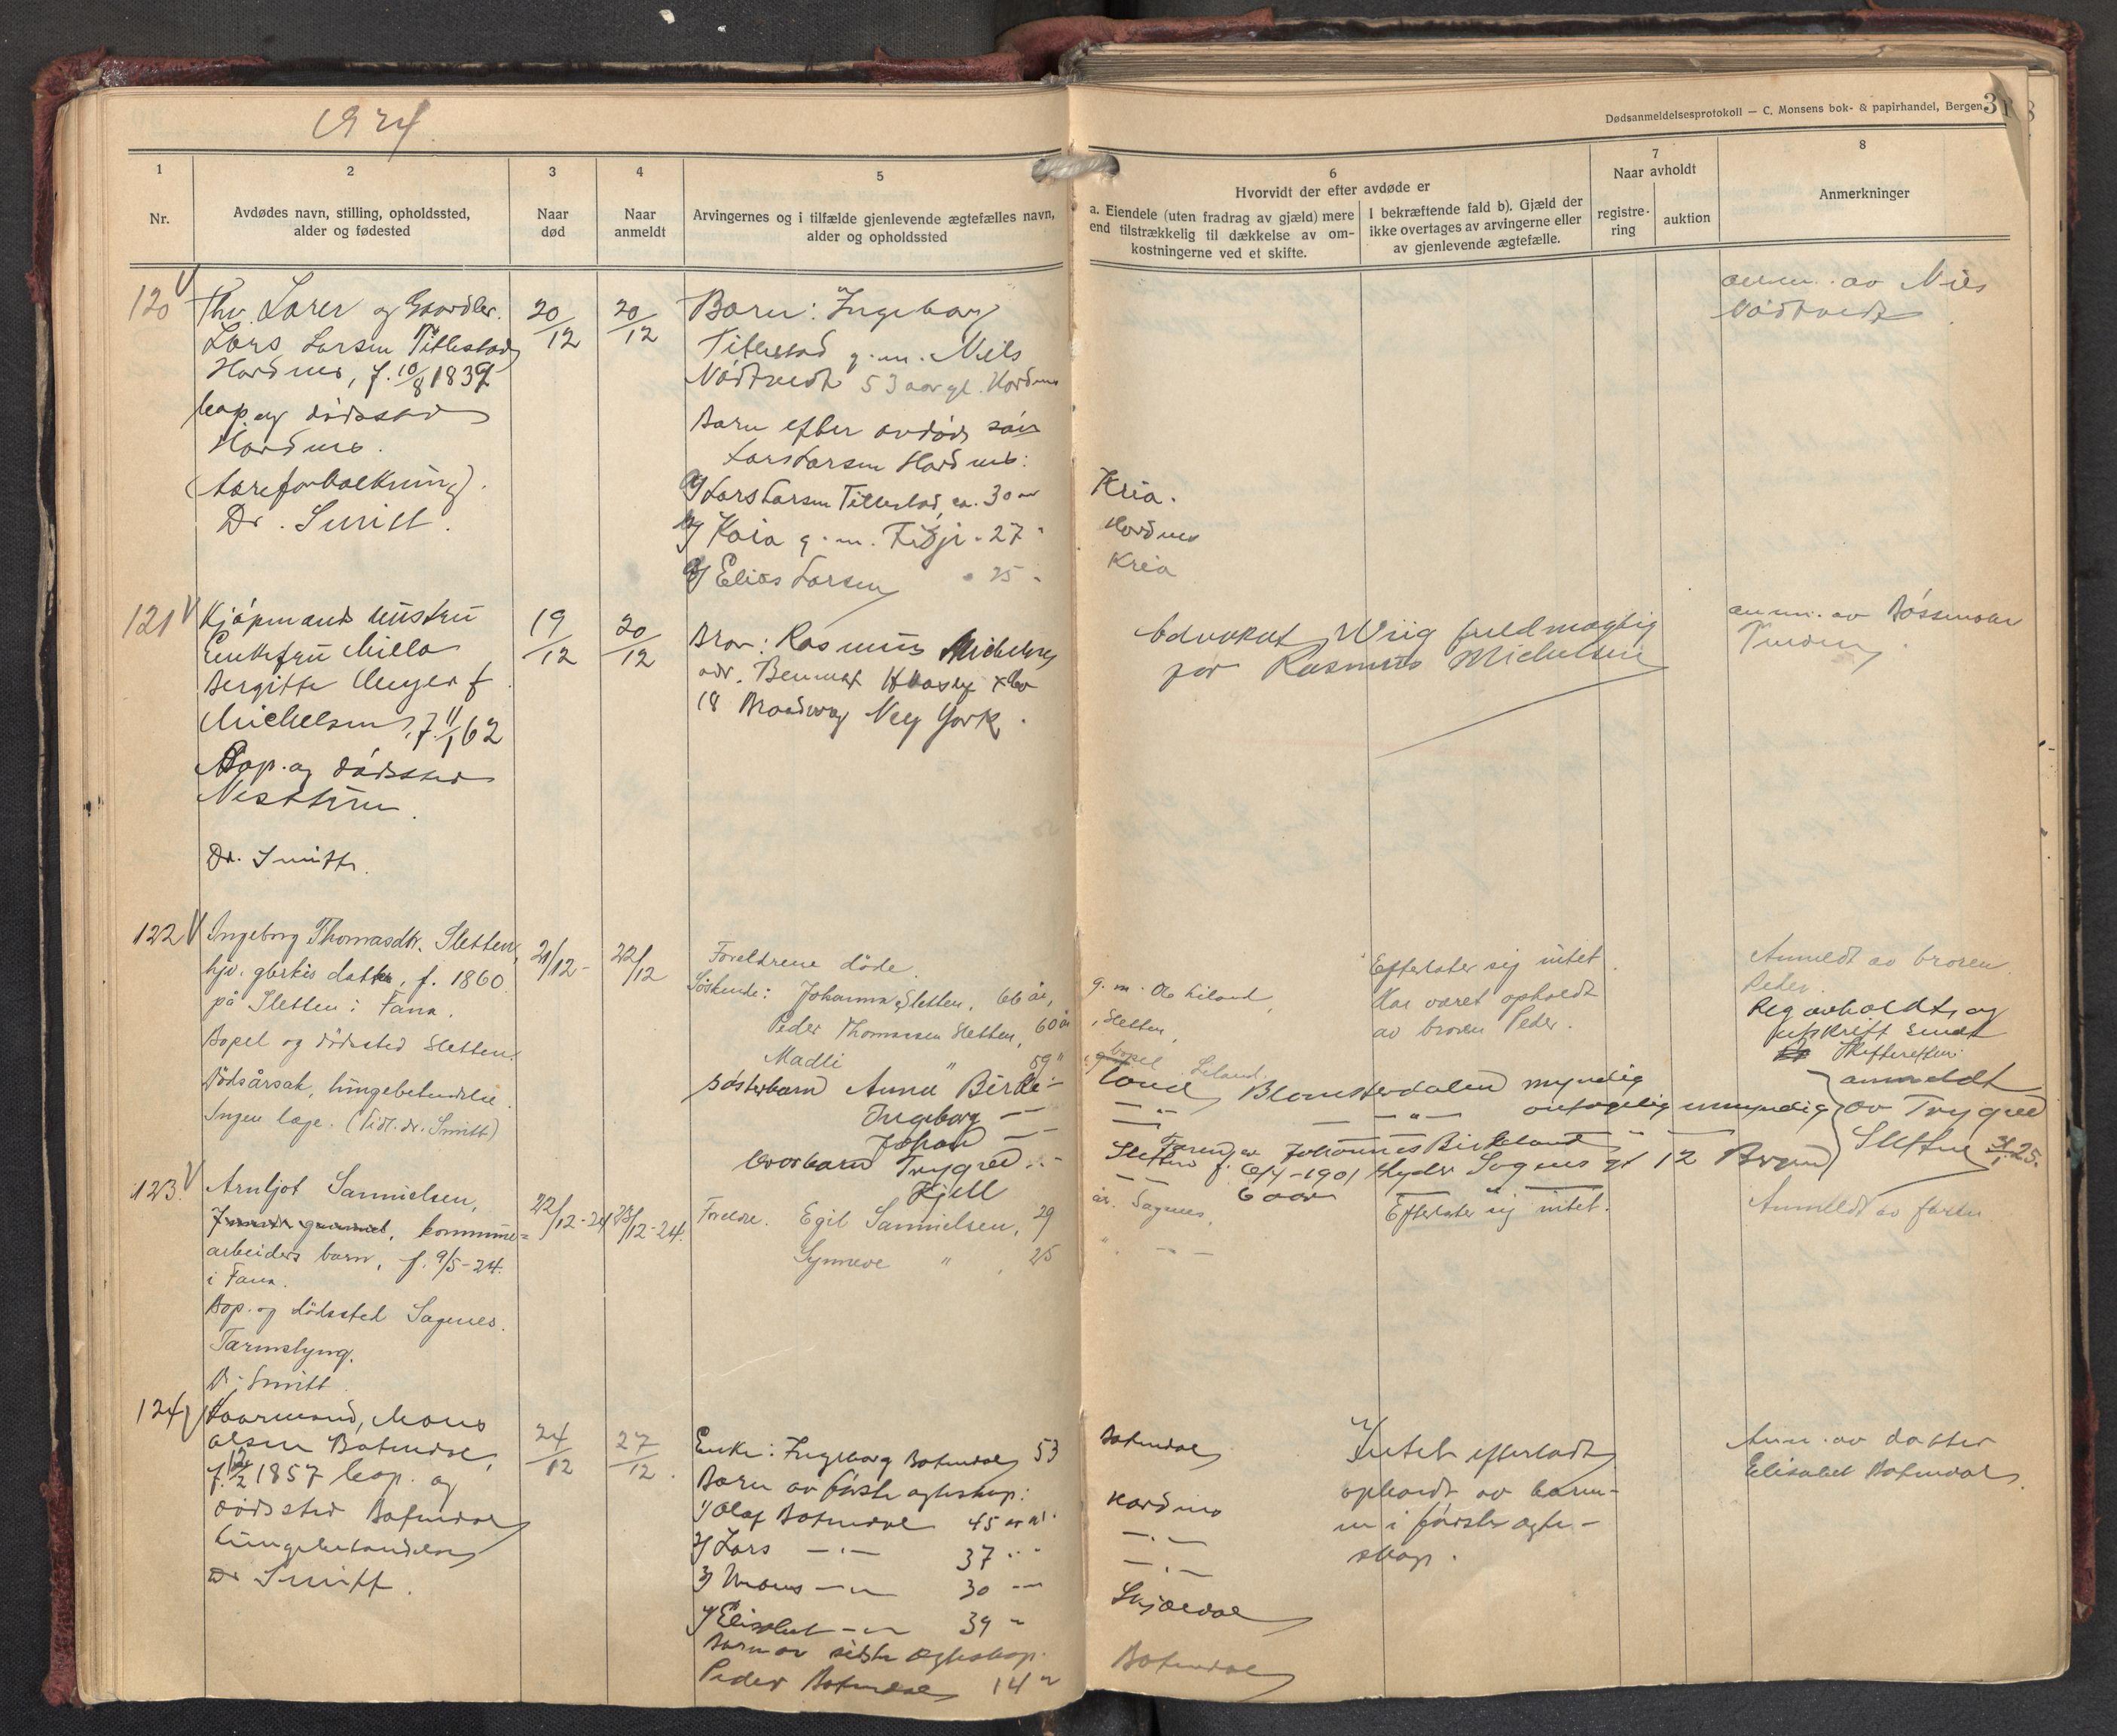 1924.
Dødsanmeldelsesprotokoll — C. Monsens bok- & papirhandel, Bergen
1
Nr.
2
Avdødes navn, stilling, opholdssted,
alder og fødested
3
Naar
død
4
Naar
anmeldt
5
Arvingernes og i tilfælde gjenlevende ægtefælles navn,
alder og opholdssted
6
Hvorvidt der efter avdøde er
a. Eiendele (uten fradrag av gjæld) mere
end tilstrækkelig til dækkelse av om-
kostningerne ved et skifte.
I bekræftende fald b). Gjæld der
ikke overtages av arvingerne eller
av gjenlevende ægtefælle.
7
Naar avholdt
registre-
ring
auktion
8
Anmerkninger
120
Fhv. Lærer og Gaardbr.
Lars Larsen Titlestad
Hordnes, f. 10/8 1839
bop. og dødssted
Hordnes.
(Aareforkalkning).
Dr. Smitt.
20/12
20/12
Barn: Ingeborg
Titlestad g.m. Niels
Nødtvedt 53 aar gl. Hordnes
Barn efter avdød søn
Lars Larsen Hordnes:
Lars Larsen Titlestad, ca. 30 aar Kria.
Kaia g.m. 27 " Hordnes
Elias Larsen " 25 " Kria
anm. av Niels
Nødtvedt
121
Kjøpmands hustru
Enkefru Milla
Bergitte Meyer f.
Michelsen, f. 11/1 62
Bop. og dødssted
Nesttun.
Dr. Smitt.
19/12
20/12
Bror: Rasmus Michelsen
adr. & Co
18 Broadway New York.
Advokat Wiig fuldmægtig
for Rasmus Michelsen
anm. av
122
Ingeborg Thomasdtr. Sletten,
hjv. gbrkis datter, f. 1860
på Sletten i Fana.
Bopel og dødssted Sletten.
Dødsårsak, lungebetendelse.
Ingen læge. (Tidl. dr. Smitt)
21/12-
22/12
Foreldrene døde.
Søskende: Johanna Sletten, 66 år, g.m. Ole Liland,
Peder Thomassen Sletten, 60 år, Sletten,
Madli " 59 " bopel Liland.
Søsterbarn Anna Birke-
land Blomsterdalen myndig
Ingeborg — —"— antagelig umyndig
Johan — —
Faren er Johannes Birkeland
Brorbarn Trygve — Sletten f. 6/4-1901
Kjell — 6 aar
Efterlater sig intet.
Har været opholdt
av broren Peder.
Anmeldt av broren
Peder.
Reg avholdt, og
utskrift sendt
Skifteretten.
anmeldt
av Trygve
Sletten 3/1 25.
123.
Arnljot Samuelsen,
kommune-
arbeiders barn, f. 9/5-24.
i Fana.
Bop. og dødssted Sagenes.
Tarmslyng.
Dr. Smitt
22/12-24
23/12-24.
Foreldre. Egil Samuelsen, 29 år. Sagenes,
Synneve " , 25 " — —
Efterlater sig intet.
Anmeldt av faren
124
Kaarmand, Mons
Olsen Botendal,
f. 12/2 1857 bop. og
dødssted Botendal
Lungebetændelse
Dr Smitt.
24/12
27/12.
Enke: Ingeborg Botendal 53 Botendal
Barn av første ægteskap:
1/ Olaf Botendal 45 aar Hordnes
2/ Lars —"— 37 " —"—
3/ Mons —"— 30 — —"—
4/ Elisabet —"— 39 " Skjoldal
Barn av sidste ægteskap.
Peder Botendal 14 " Botendal
Intet efterladt
opholdt av barne-
ne i første ægte-
skap.
Anm. av datter
Elisabet Botendal.